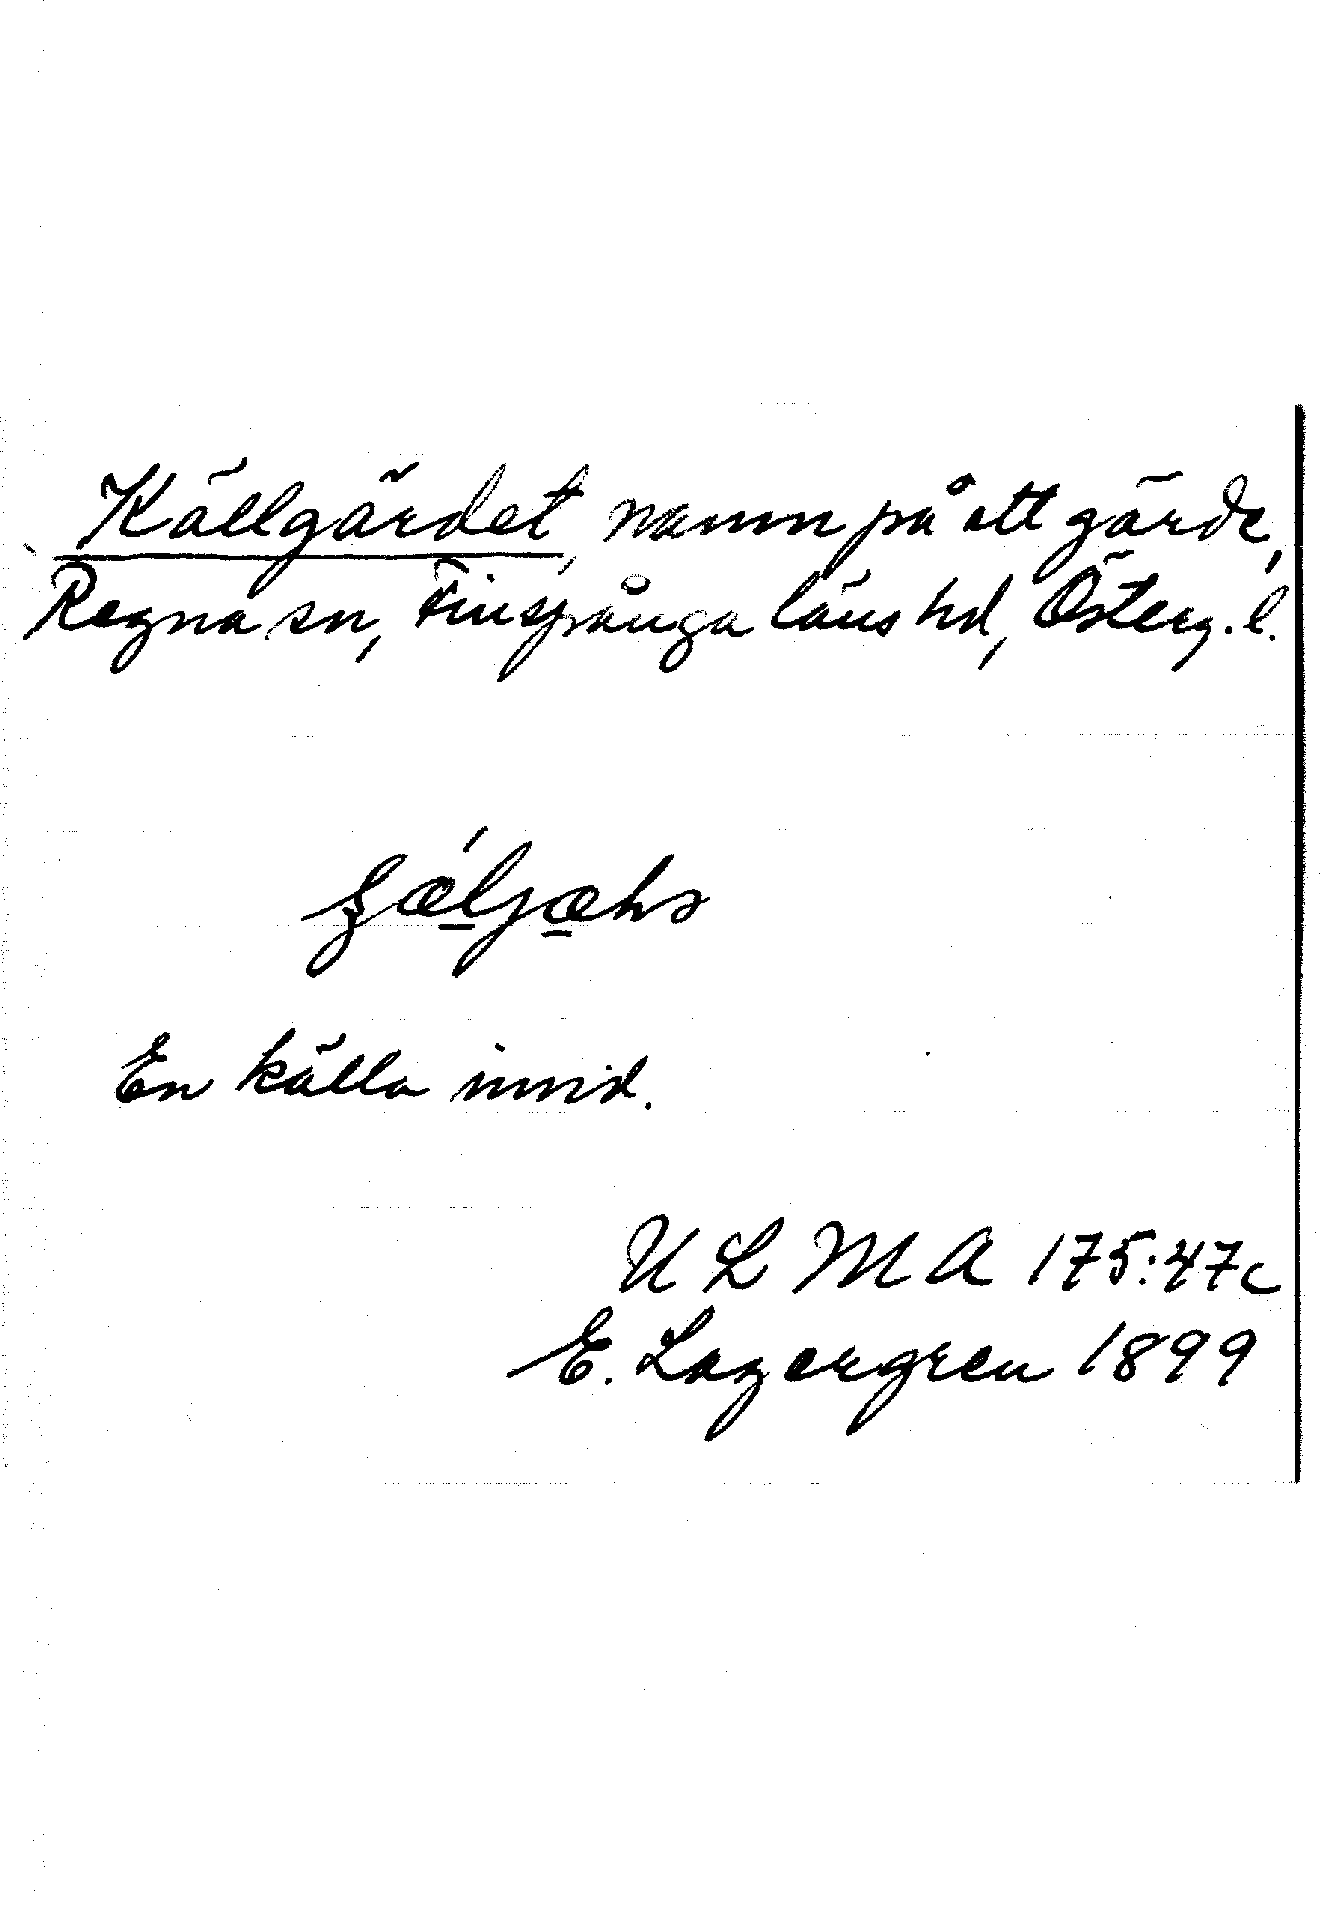 Källgärdet, namn på ett gärde,
Regna sn, Finspånga läns hd, Österg. l.
En källa invid.
U L M A 175:47c
E. Lagergren 1899